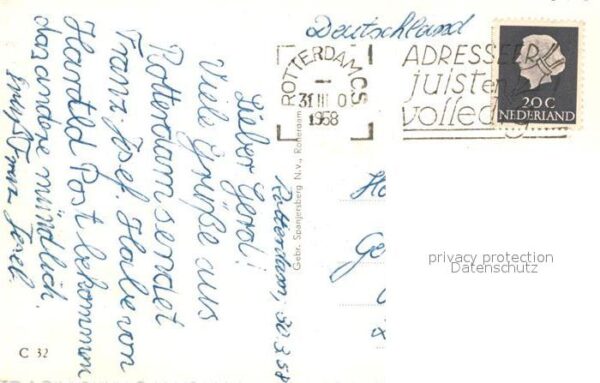 Deutschland
ROTTERDAM CS
31 III 0
1958
ADRESSEER
juist en
volled
20 C
NEDERLAND
Rotterdam, 30.3.58
Lieber Gerd!
Viele Grüße aus
Rotterdam sendet
Franz-Josef. Habe von
Harald Post bekommen
das andere mündlich.
Franz Josef
Gebr. Spanjersberg N.V., Rotterdam
C 32
He
Ge
privacy protection
Datenschutz